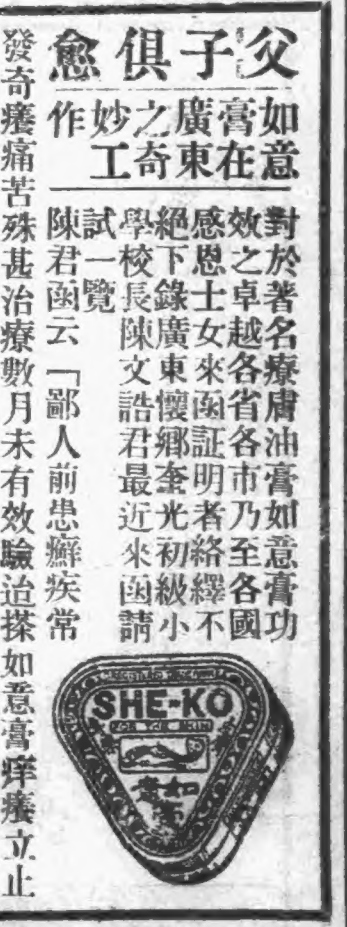 父子俱愈
如意
膏在
廣東
之奇
妙工
作
對於著名療膚油膏如意膏功
效之卓越各省各市乃至各國
感恩士女來函証明者絡繹不
絕下錄廣東懷鄉奎光初級小
學校長陳文誥君最近來函請
試一覽
陳君函云「鄙人前患癬疾常
發奇癢痛苦殊甚治療數月未有效驗迨搽如意膏痒癢立止
SHE-KO
FOR THE SKIN
如意膏